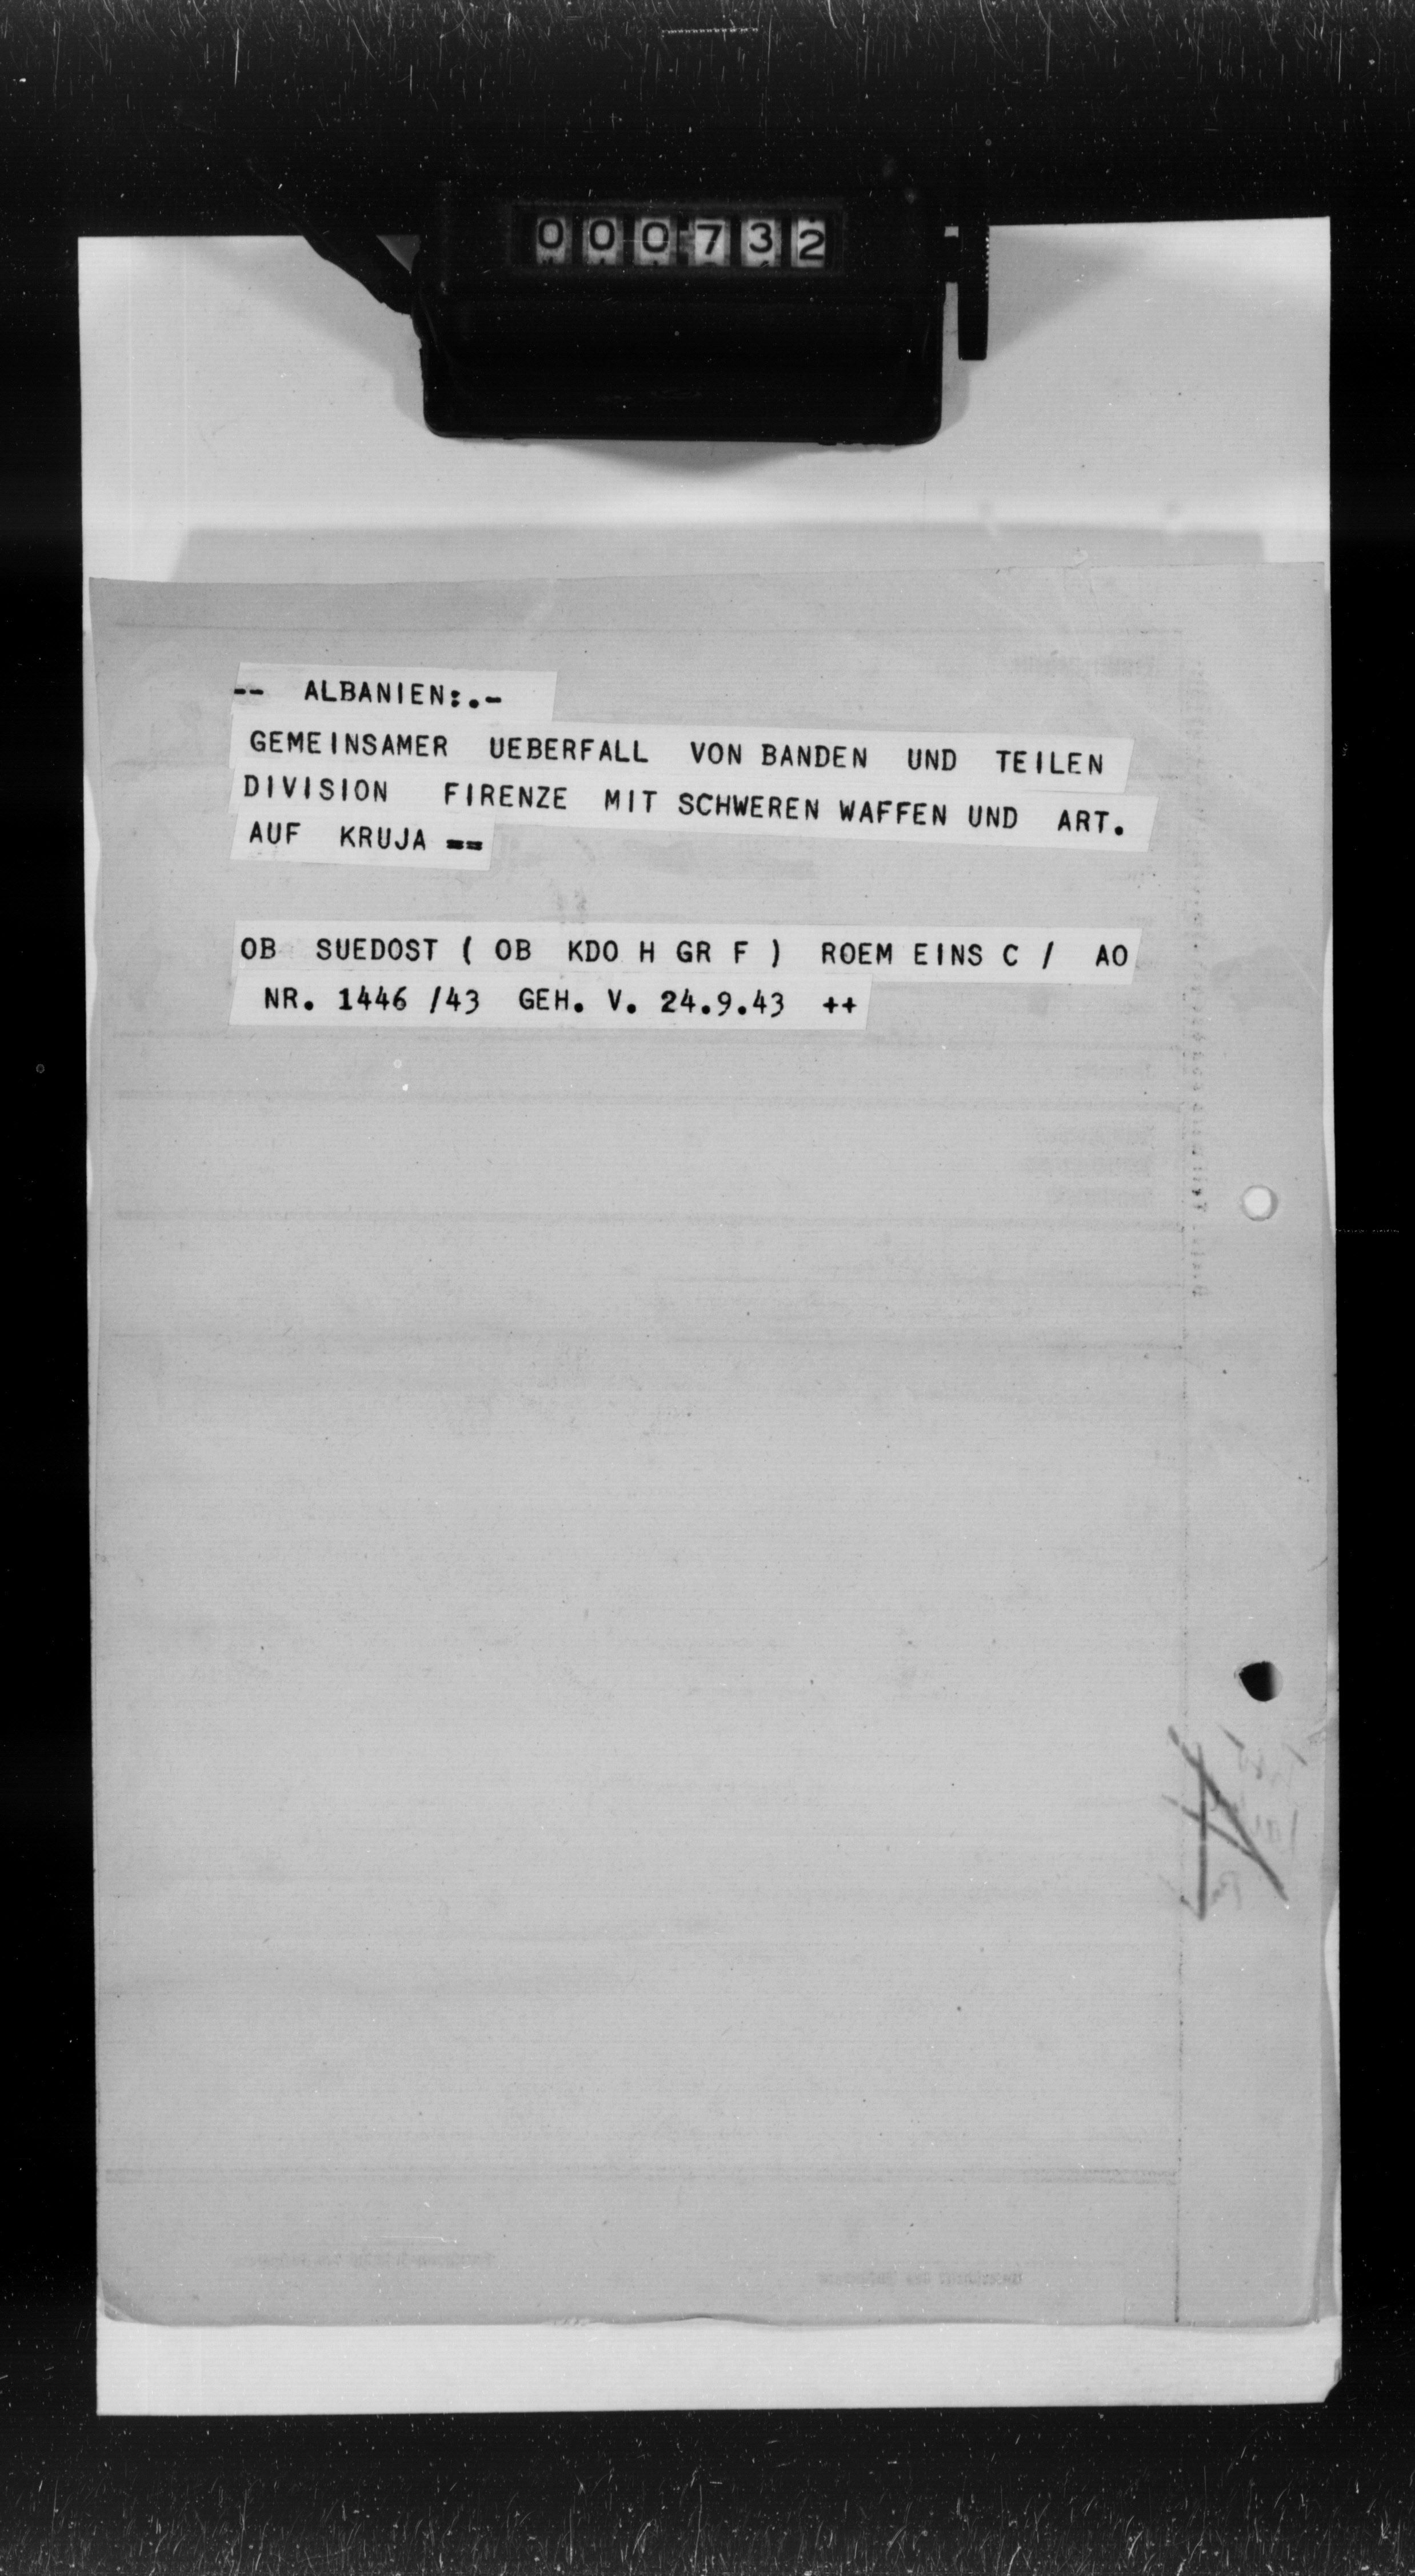 000732
-- ALBANIEN:.-
GEMEINSAMER UEBERFALL VON BANDEN UND TEILEN
DIVISION FIRENZE MIT SCHWEREN WAFFEN UND ART.
AUF KRUJA ==
OB SUEDOST ( OB KDO H GR F ) ROEM EINS C / AO
NR. 1446 /43 GEH. V. 24.9.43 ++